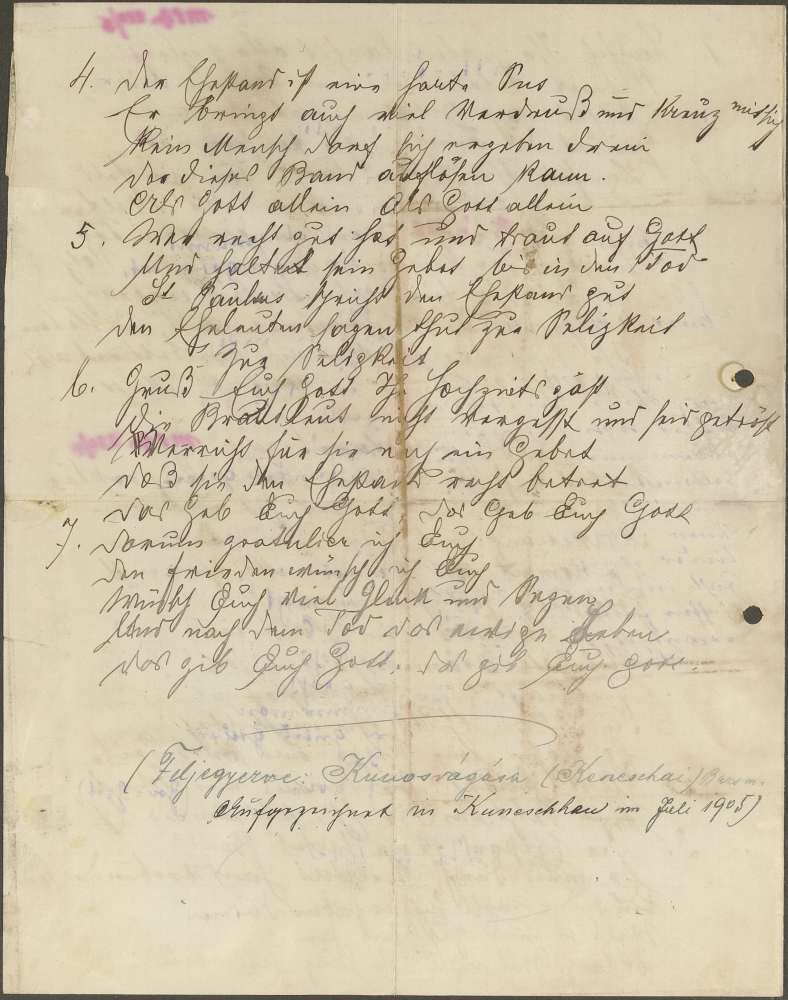 4. Der Ehestand ist eine harte Bus
Er bringt auch viel Verdruß und Kreuz mit sich
Kein Mensch darf sich ergeben drein
der dieses Band auflösen kann.
Als Gott allein Als Gott allein
5. Wer recht gut hat und traut auf Gott
Und haltet sein Gebot bis in den Tod
St Paulus spricht den Ehestand gut
den Eheleuten sagen thut zur Seligkeit
Zur Seligkeit
6. Gruß Euch Gott Ihr Hochzeitsgäst
die Brautleut nicht vergesst und seid getröst
Verricht für sie auch ein Gebet
daß sie den Ehestand recht betret
das Geb Euch Gott, das Geb Euch Gott
7. darum gratulier ich Euch
den Frieden wünsch ich Euch
Wünsch Euch viel Glück und Segen
Und nach dem Tod das ewige Leben
das gib Euch Gott, das gib Euch Gott.
(Feljegyezve: Kunosvágása (Keneschai) Barsm.
Aufgezeichnet in Kuneschhau im Juli 1905)